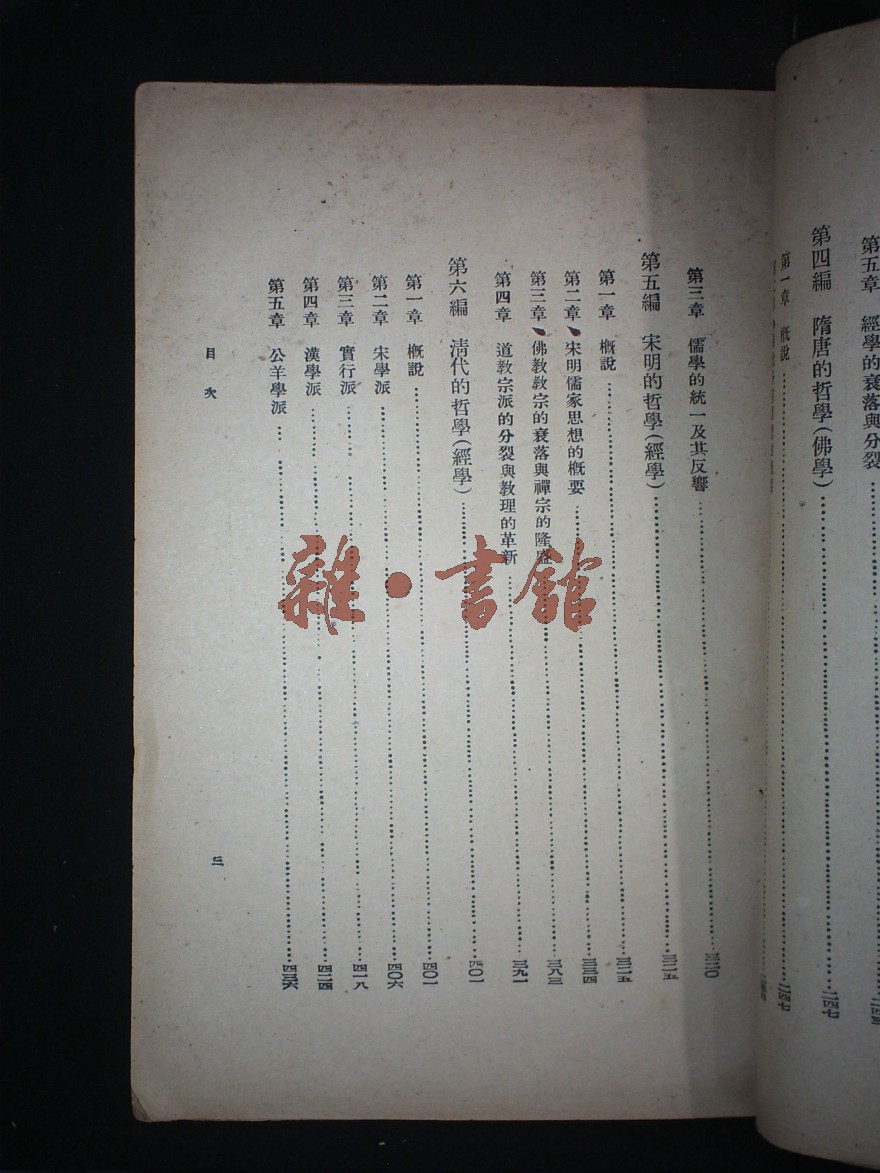 第五章　經學的衰落與分裂
第四編　隋唐的哲學(佛學)……二四七
第一章　槪說……二四七
第三章　儒學的統一及其反響……三二〇
第五編　宋明的哲學(經學)……三二五
第一章　槪說……三二五
第二章　宋明儒家思想的槪要……三三四
第三章　佛教教宗的衰落與禪宗的隆盛……三八三
第四章　道教宗派的分裂與教理的革新……三九一
第六編　淸代的哲學(經學)……四〇一
第一章　槪說……四〇一
第二章　宋學派……四〇六
第三章　實行派……四一八
第四章　漢學派……四二四
第五章　公羊學派……四三六
目次
三
雜·書館